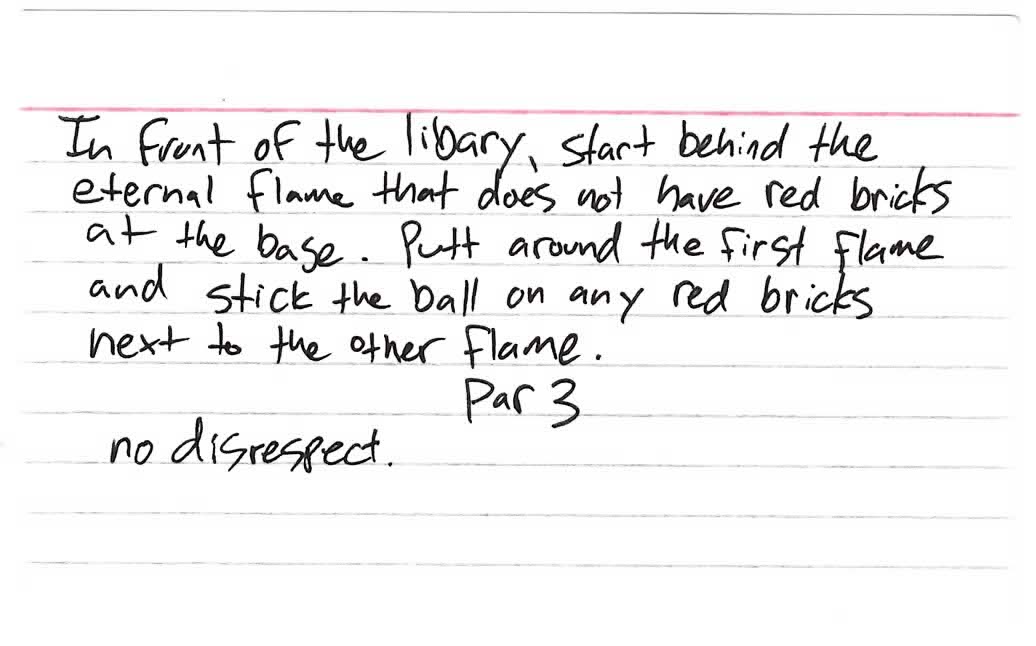 In front of the libary, start behind the
eternal flame that does not have red bricks
at the base. Putt around the first flame
and stick the ball on any red bricks
next to the other flame.
Par 3
no disrespect.